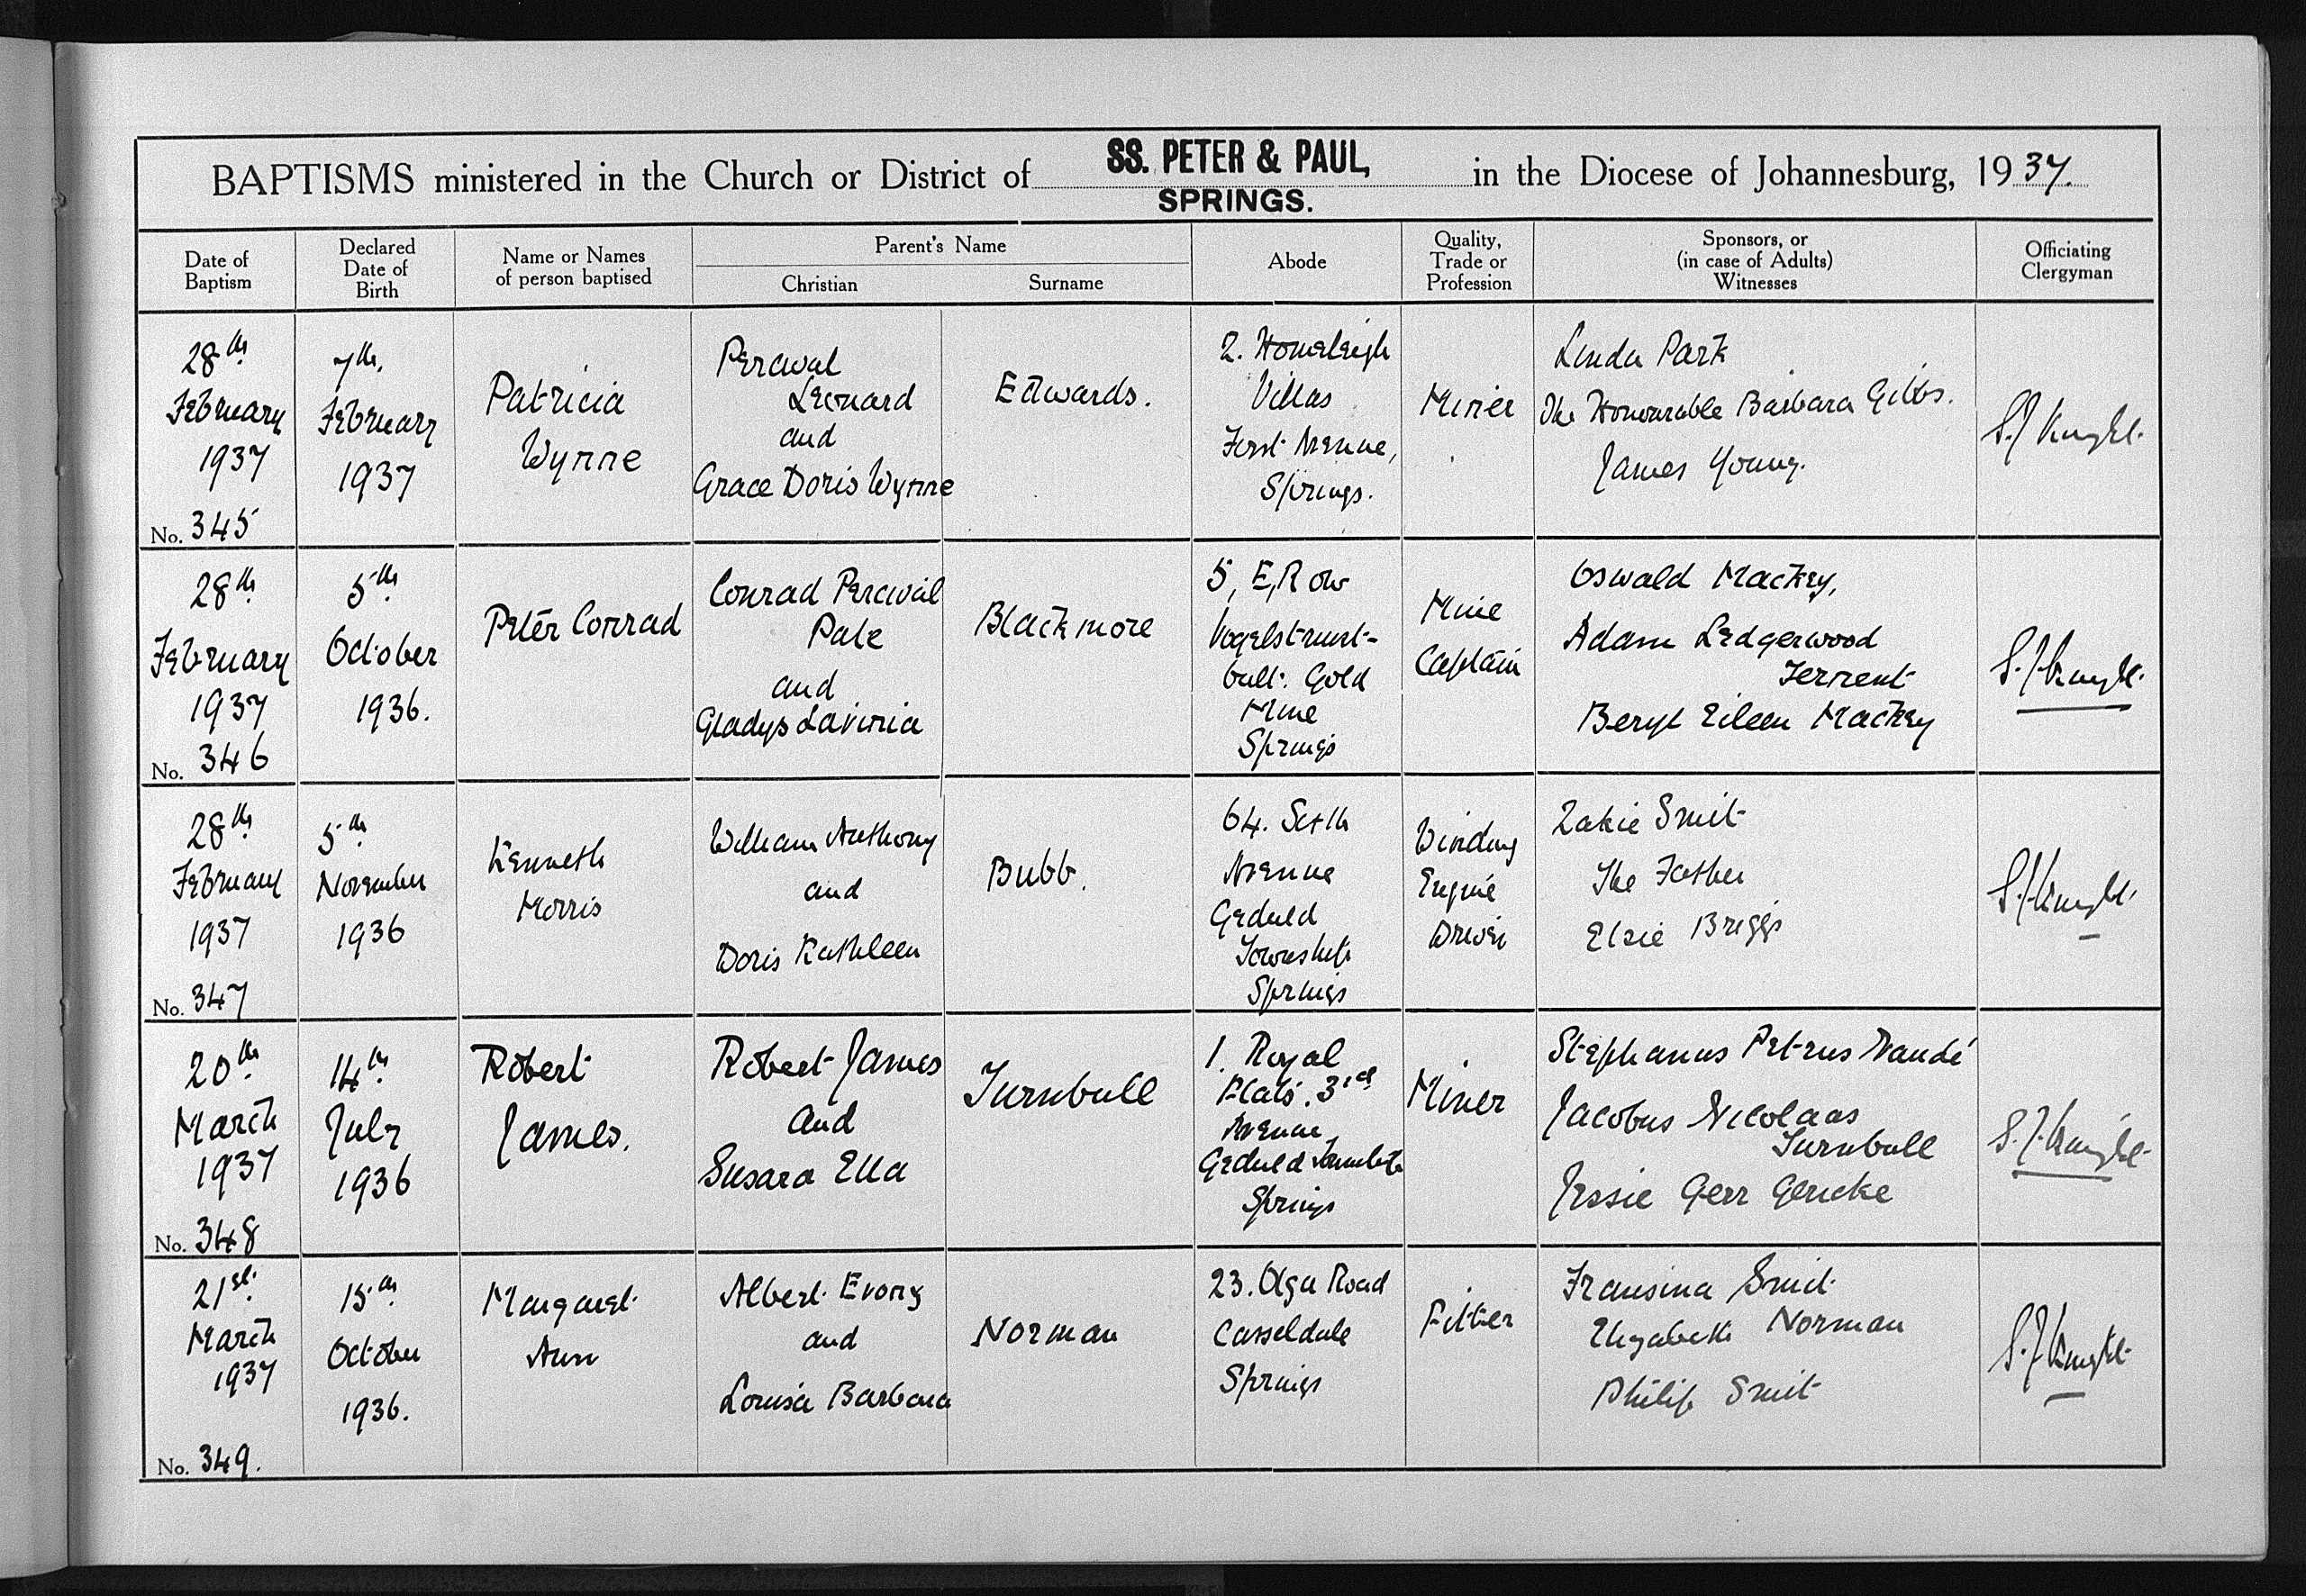 BAPTISMS ministered in the Church or District of SS. PETER & PAUL, SPRINGS. in the Diocese of Johannesburg, 1937.
Date of Baptism
Declared Date of Birth
Name or Names of person baptised
Parent's Name
Christian
Surname
Abode
Quality, Trade or Profession
Sponsors, or (in case of Adults) Witnesses
Officiating Clergyman
28th
February
1937
No. 345
7th.
February
1937
Patricia
Wynne
Percival
Leonard
and
Grace Doris Wynne
Edwards.
2.
Villas
First Avenue,
Springs.
Miner
Linda Park
The Honourable Barbara Gibbs.
James Young.
S.J. Knight.
28th
February
1937
No. 346
5th
October
1936.
Peter Conrad
Conrad Percival
Pate
and
Gladys Lavinia
Blackmore
5, E, Row
Vogelstruist-
bult. Gold
Mine
Springs
Mine
Captain
Oswald Mackey,
Adam Ledgerwood
Terrent
Beryl Eileen Mackey
S.J. Knight.
28th
February
1937
No. 347
5th
November
1936
Kenneth
Morris
William Anthony
and
Doris Kathleen
Bubb.
64. Sixth
Avenue
Geduld
Township
Springs
Winding
Engine
Driver
Zakie Smit
The Father
Elsie Briggs
S.J. Knight.
20th
March
1937
No. 348
14th
July
1936
Robert
James.
Robert James
and
Susara Ella
Turnbull
1. Royal
Flats. 3rd
Avenue,
Geduld Township
Springs
Miner
Stephanus Petrus Naudé
Jacobus Nicolaas
Turnbull
Jessie Gerr Gericke
S.J. Knight.
21st.
March
1937
No. 349.
15th
October
1936.
Margaret
Ann
Albert
and
Louisa Barbara
Norman
23. Olga Road
Casseldale
Springs
Fitter
Fransina Smit
Elizabeth Norman
Philip Smit
S.J. Knight.